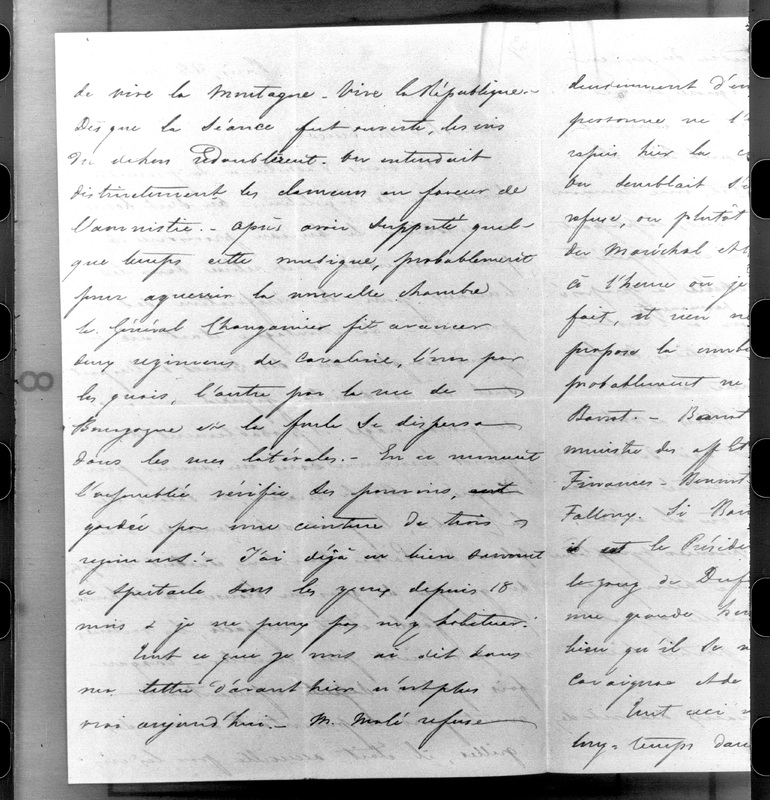 de vive la Montagne - Vive la République -
Dès que la Séance fut ouverte, les cris
du dehors redoublèrent. On entendait
distinctement les clameurs en faveur de
l'amnistie. - après avoir supporté quel-
que temps cette musique, probablement
pour aguerrir la nouvelle chambre
le Général Changarnier fit avancer
deux regimens de cavalerie, l'un par
les quais, l'autre par la rue de
Bourgogne & la foule se dispersa
dans les rues latérales. - En ce moment
l'assemblée vérifie ses pouvoirs,
gardée par une ceinture de trois
regimens! - J'ai déjà eu bien souvent
ce spectacle sous les yeux depuis 18
mois & je ne peux pas m'y habituer!
Tout ce que je vous ai dit dans
ma lettre d'avant hier n'est plus
vrai aujourd'hui. - M. Molé refuse
personne ne l'
depuis hier la
On semblait s'
refuse, ou plutôt
du Maréchal
à l'heure où je
fait, et rien ne
propose la
probablement ne
Barrot. -
ministre des aff
Finances -
Falloux. Si
il est le
le gouy de
une grande
bien qu'il se
Cavaignac
Tout ceci
long-temps
8